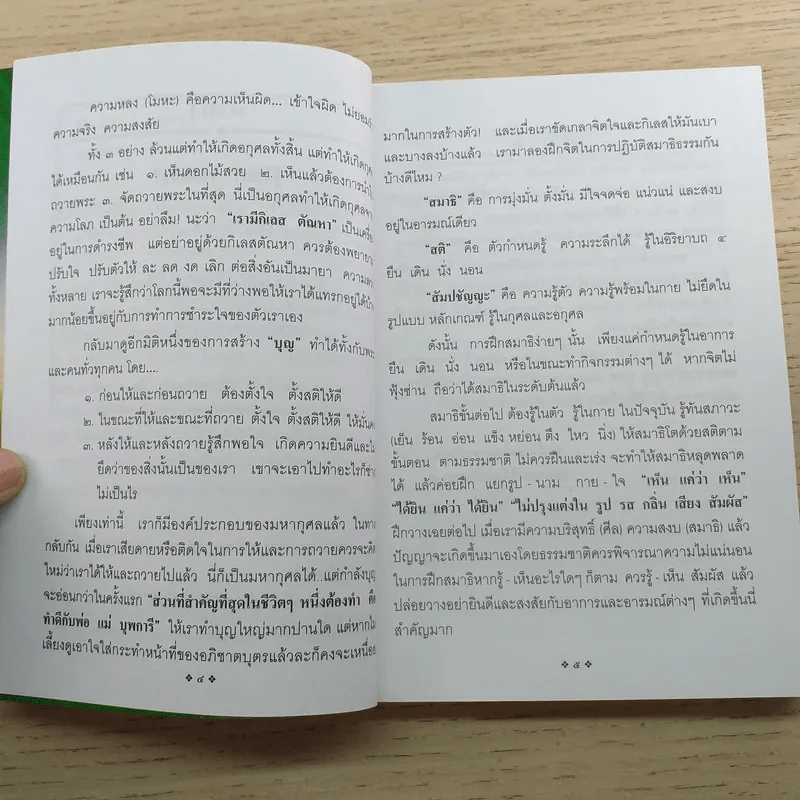 ความหลง (โมหะ) คือความเห็นผิด... เข้าใจผิด ไม่ยอมรับ
ความจริง ความสงสัย
ทั้ง ๓ อย่าง ล้วนแต่ทำให้เกิดอกุศลทั้งสิ้น แต่ทำให้เกิดกุศล
ได้เหมือนกัน เช่น ๑. เห็นดอกไม้สวย ๒. เห็นแล้วต้องการนำไป
ถวายพระ ๓. จัดถวายพระในที่สุด นี่เป็นอกุศลทำให้เกิดกุศลจาก
ความโลภ เป็นต้น อย่าลืม! นะว่า “เรามีกิเลส ตัณหา” เป็นเครื่อง
อยู่ในการดำรงชีพ แต่อย่าอยู่ด้วยกิเลสตัณหา ควรต้องพยายาม
ปรับใจ ปรับตัวให้ ละ ลด งด เลิก ต่อสิ่งอันเป็นมายา ความหลง
ทั้งหลาย เราจะรู้สึกว่าโลกนี้พอจะมีที่ว่างพอให้เราได้แทรกอยู่ได้บ้าง
มากน้อยขึ้นอยู่กับการทำการชำระใจของตัวเราเอง
กลับมาดูอีกมิติหนึ่งของการสร้าง “บุญ” ทำได้ทั้งกับพระ
และคนทั่วทุกคน โดย....
๑. ก่อนให้และก่อนถวาย ต้องตั้งใจ ตั้งสติให้ดี
๒. ในขณะที่ให้และขณะที่ถวาย ตั้งใจ ตั้งสติให้ดี ให้มั่นคง
๓. หลังให้และหลังถวายรู้สึกพอใจ เกิดความยินดีและไม่
ยึดว่าของสิ่งนั้นเป็นของเรา เขาจะเอาไปทำอะไรก็ช่าง
ไม่เป็นไร
เพียงเท่านี้ เราก็มีองค์ประกอบของมหากุศลแล้ว ในทาง
กลับกัน เมื่อเราเสียดายหรือติดใจในการให้และการถวายควรจะคิด
ใหม่ว่าเราได้ให้และถวายไปแล้ว นี่ก็เป็นมหากุศลได้..แต่กำลังบุญ
จะอ่อนกว่าในครั้งแรก “ส่วนที่สำคัญที่สุดในชีวิตๆ หนึ่งต้องทำ คือ
ทำดีกับพ่อ แม่ บุพการี” ให้เราทำบุญใหญ่มากปานใด แต่หากไม่
เลี้ยงดูเอาใจใส่กระทำหน้าที่ของอภิชาตบุตรแล้วละก็คงจะเหนื่อย
❖ ๔ ❖
มากในการสร้างตัว! และเมื่อเราขัดเกลาจิตใจและกิเลสให้มันเบา
และบางลงบ้างแล้ว เรามาลองฝึกจิตในการปฏิบัติสมาธิธรรมกัน
บ้างดีไหม ?
“สมาธิ” คือ การมุ่งมั่น ตั้งมั่น มีใจจดจ่อ แน่วแน่ และสงบ
อยู่ในอารมณ์เดียว
“สติ” คือ ตัวกำหนดรู้ ความระลึกได้ รู้ในอิริยาบถ ๔
ยืน เดิน นั่ง นอน
“สัมปชัญญะ” คือ ความรู้ตัว ความรู้พร้อมในกาย ไม่ยึดใน
รูปแบบ หลักเกณฑ์ รู้ในกุศลและอกุศล
ดังนั้น การฝึกสมาธิง่ายๆ นั้น เพียงแค่กำหนดรู้ในอาการ
ยืน เดิน นั่ง นอน หรือในขณะทำกิจกรรมต่างๆ ได้ หากจิตไม่
ฟุ้งซ่าน ถือว่าได้สมาธิในระดับต้นแล้ว
สมาธิขั้นต่อไป ต้องรู้ในตัว รู้ในกาย ในปัจจุบัน รู้ทันสภาวะ
(เย็น ร้อน อ่อน แข็ง หย่อน ตึง ไหว นิ่ง) ให้สมาธิโตด้วยสติตาม
ขั้นตอน ตามธรรมชาติ ไม่ควรฝืนและเร่ง จะทำให้สมาธิหลุดพลาด
ได้ แล้วค่อยฝึก แยกรูป - นาม กาย - ใจ “เห็น แค่ว่า เห็น”
“ได้ยิน แค่ว่า ได้ยิน” “ไม่ปรุงแต่งใน รูป รส กลิ่น เสียง สัมผัส”
ฝึกวางเฉยต่อไป เมื่อเรามีความบริสุทธิ์ (ศีล) ความสงบ (สมาธิ) แล้ว
ปัญญาจะเกิดขึ้นมาเองโดยธรรมชาติควรพิจารณาความไม่แน่นอน
ในการฝึกสมาธิหากรู้ - เห็นอะไรใดๆ ก็ตาม ควรรู้ - เห็น สัมผัส แล้ว
ปล่อยวางอย่ายินดีและสงสัยกับอาการและอารมณ์ต่างๆ ที่เกิดขึ้นนี่
สำคัญมาก
❖ ๕ ❖